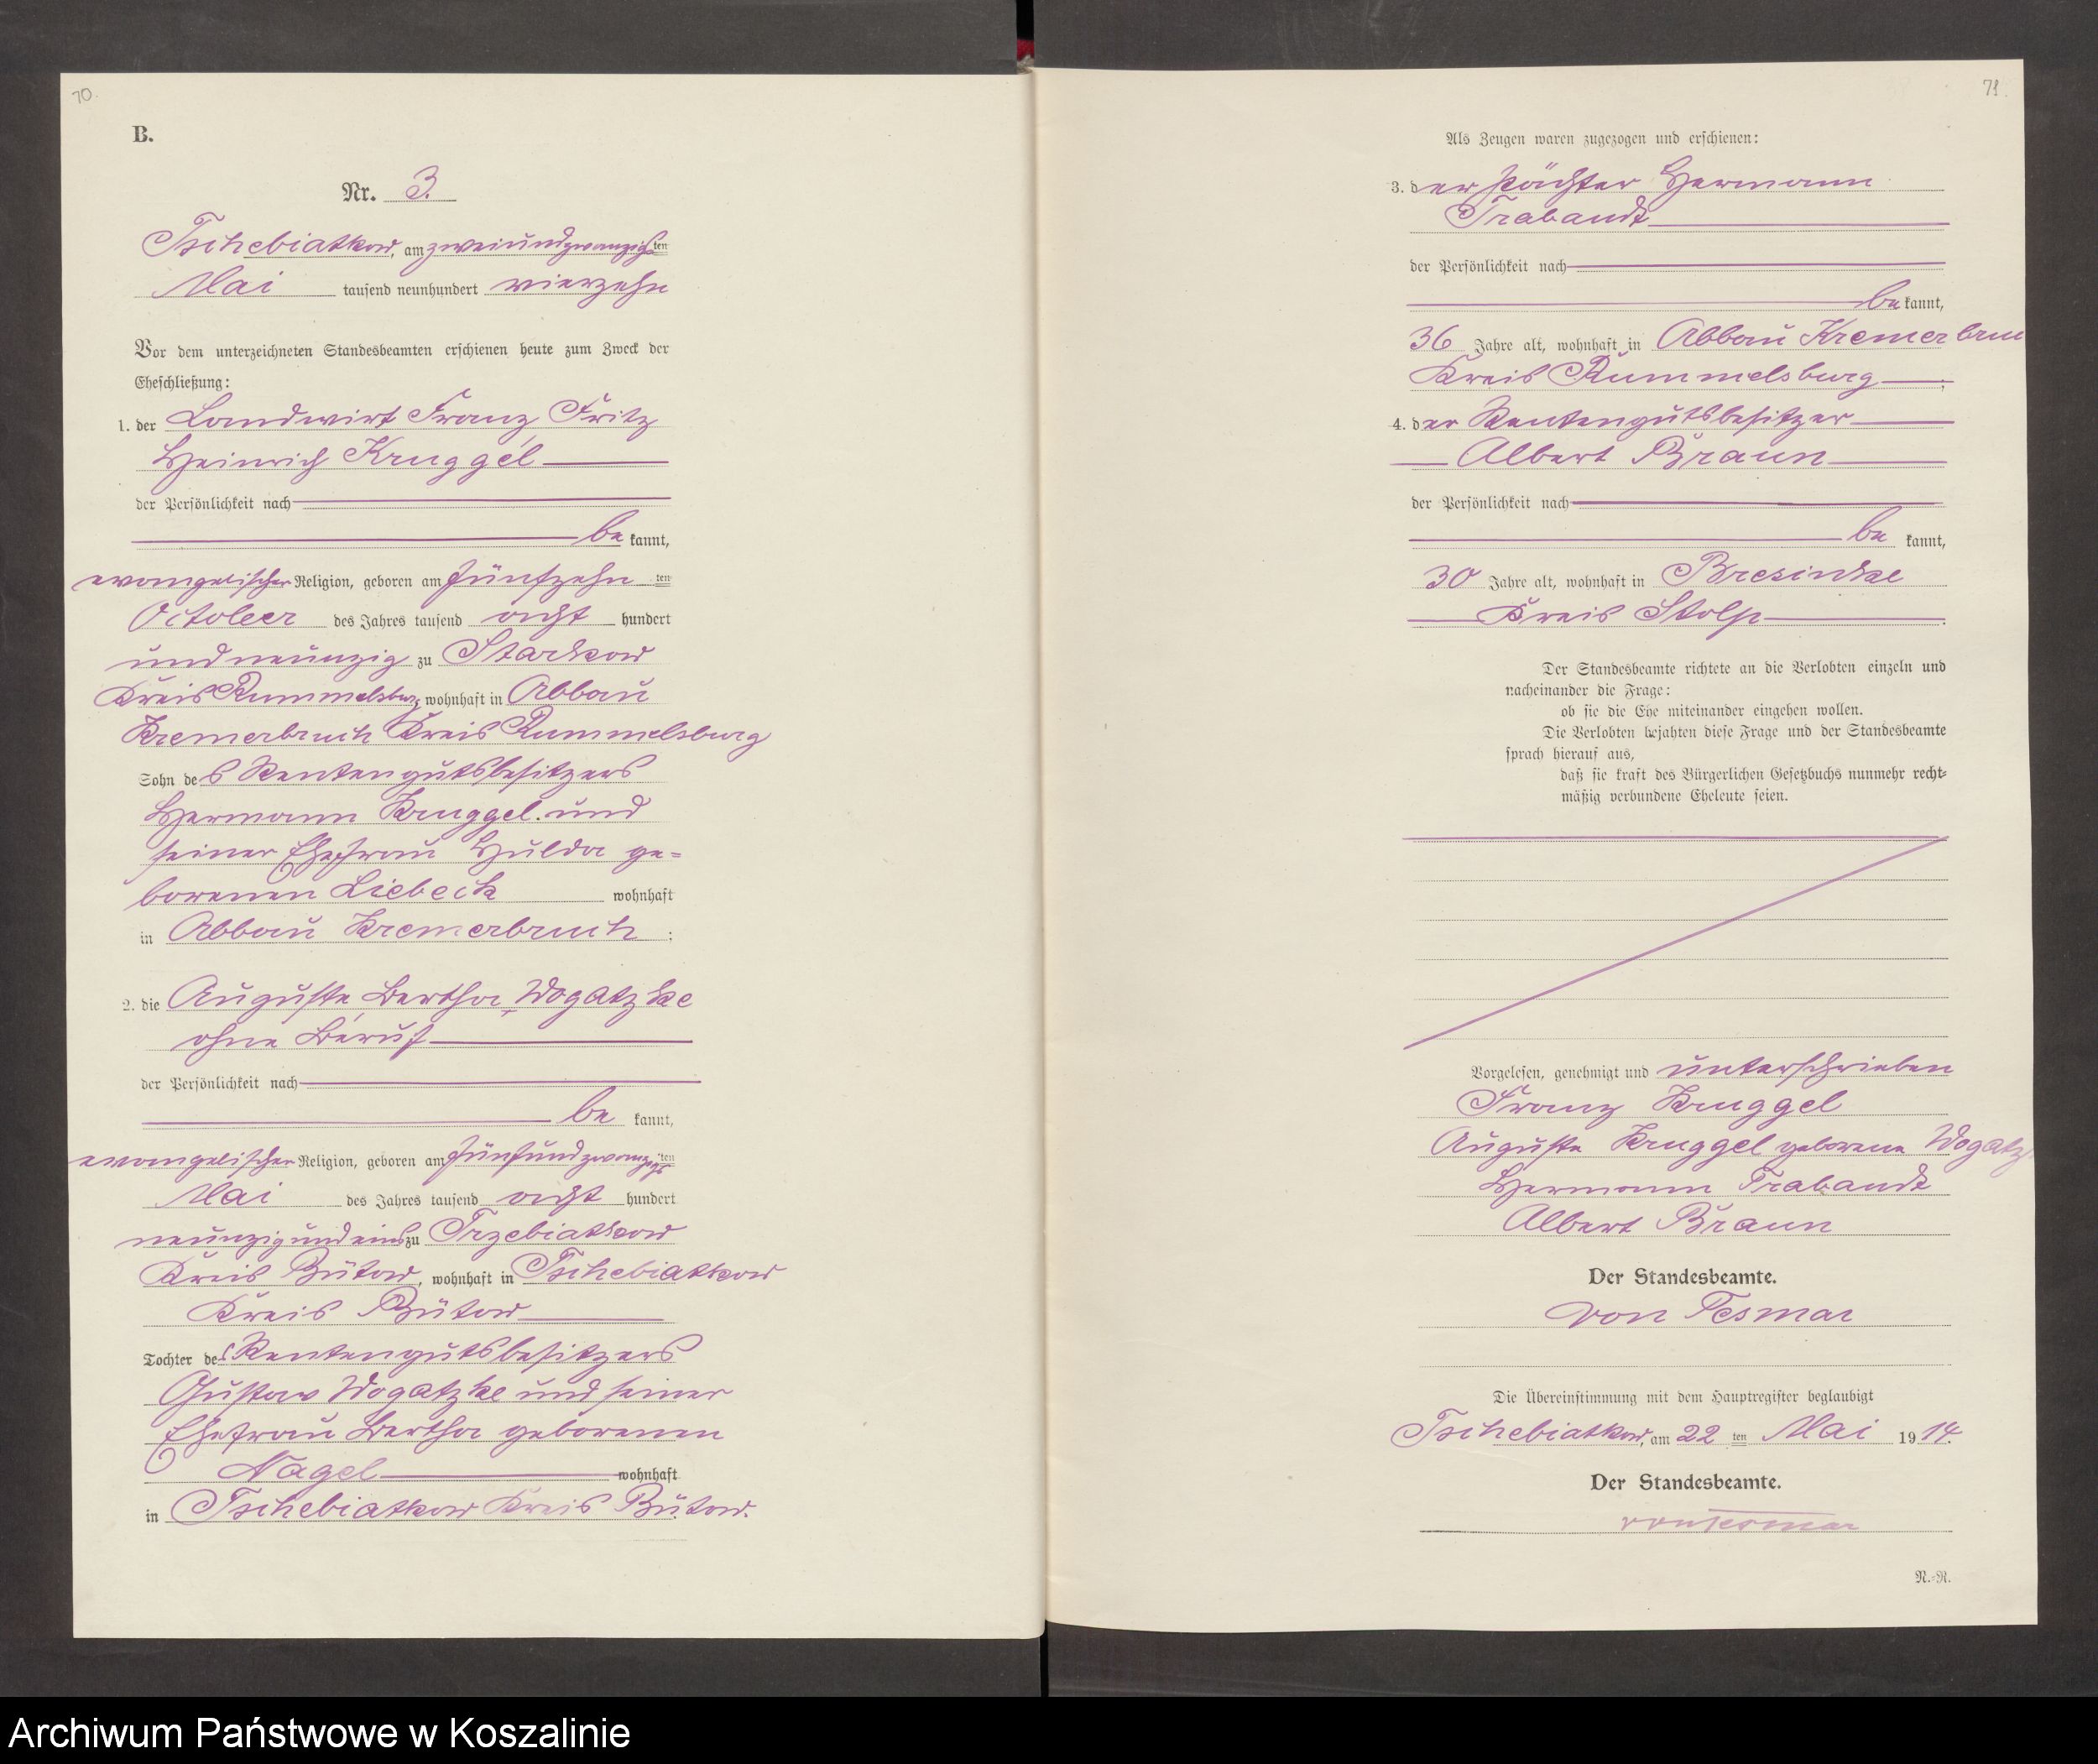 70.
B.
Nr. 3.
Tschebiatkow, am zweiundzwanzigsten
Mai tausend neunhundert vierzehn
Vor dem unterzeichneten Standesbeamten erschienen heute zum Zweck der
Eheschließung:
1. der Landwirt Franz Fritz
Heinrich Kruggel
der Persönlichkeit nach
be kannt,
evangelischer Religion, geboren am fünfzehn ten
October des Jahres tausend acht hundert
und neunzig zu Starkow
Kreis Rummelsburg, wohnhaft in Abbau
Kremerbruch Kreis Rummelsburg
Sohn des Rentengutsbesitzers
Hermann Kruggel und
seiner Ehefrau Hulda ge-
borenen Liebeck wohnhaft
in Abbau Kremerbruch ;
2. die Auguste Bertha Wogatzke
ohne Beruf
der Persönlichkeit nach
be kannt,
evangelischer Religion, geboren am fünfundzwanzigsten
Mai des Jahres tausend acht hundert
neunzigundeins zu Trzebiatkow
Kreis Bütow, wohnhaft in Tschebiatkow
Kreis Bütow
Tochter des Rentengutsbesitzers
Gustav Wogatzke und seiner
Ehefrau Bertha geborenen
Nagel wohnhaft
in Tschebiatkow Kreis Bütow.
71.
Als Zeugen waren zugezogen und erschienen:
3. der Pächter Hermann
Trabandt
der Persönlichkeit nach
be kannt,
36 Jahre alt, wohnhaft in Abbau Kremerbruc
Kreis Rummelsburg ;
4. der Rentengutsbesitzer
Albert Braun
der Persönlichkeit nach
be kannt,
30 Jahre alt, wohnhaft in Bresinke
Kreis Stolp .
Der Standesbeamte richtete an die Verlobten einzeln und
nacheinander die Frage:
ob sie die Ehe miteinander eingehen wollen.
Die Verlobten bejahten diese Frage und der Standesbeamte
sprach hierauf aus,
daß sie kraft des Bürgerlichen Gesetzbuchs nunmehr recht-
mäßig verbundene Eheleute seien.
Vorgelesen, genehmigt und unterschrieben
Franz Kruggel
Auguste Kruggel geborene Wogatz
Hermann Trabandt
Albert Braun
Der Standesbeamte.
von Tesmar
Die Übereinstimmung mit dem Hauptregister beglaubigt
Tschebiatkow, am 22 ten Mai 1914.
Der Standesbeamte.
von Tesmar
N.-R.
Archiwum Państwowe w Koszalinie